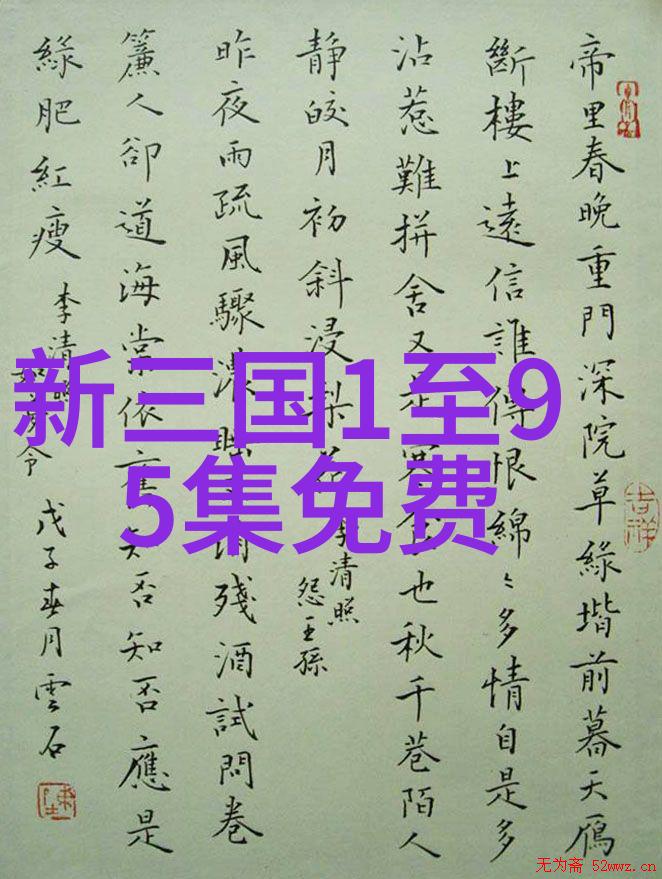 帝里春晚重門深院草緑堦前暮天鴈
斷樓上遠信誰得恨綿々多情自是多
沾惹難拼舍又是寒食也秋千巷陌人
静皎月初斜浸梨花
李清照
怨王孫
昨夜雨疏風驟濃睡消殘酒試問卷
簾人卻道海棠依舊知否知否應是
緑肥紅瘦
李清照
如夢令
戊子春月雲石
吉祥
新三国1至9
5集免费
无为斋 52wwz.cn